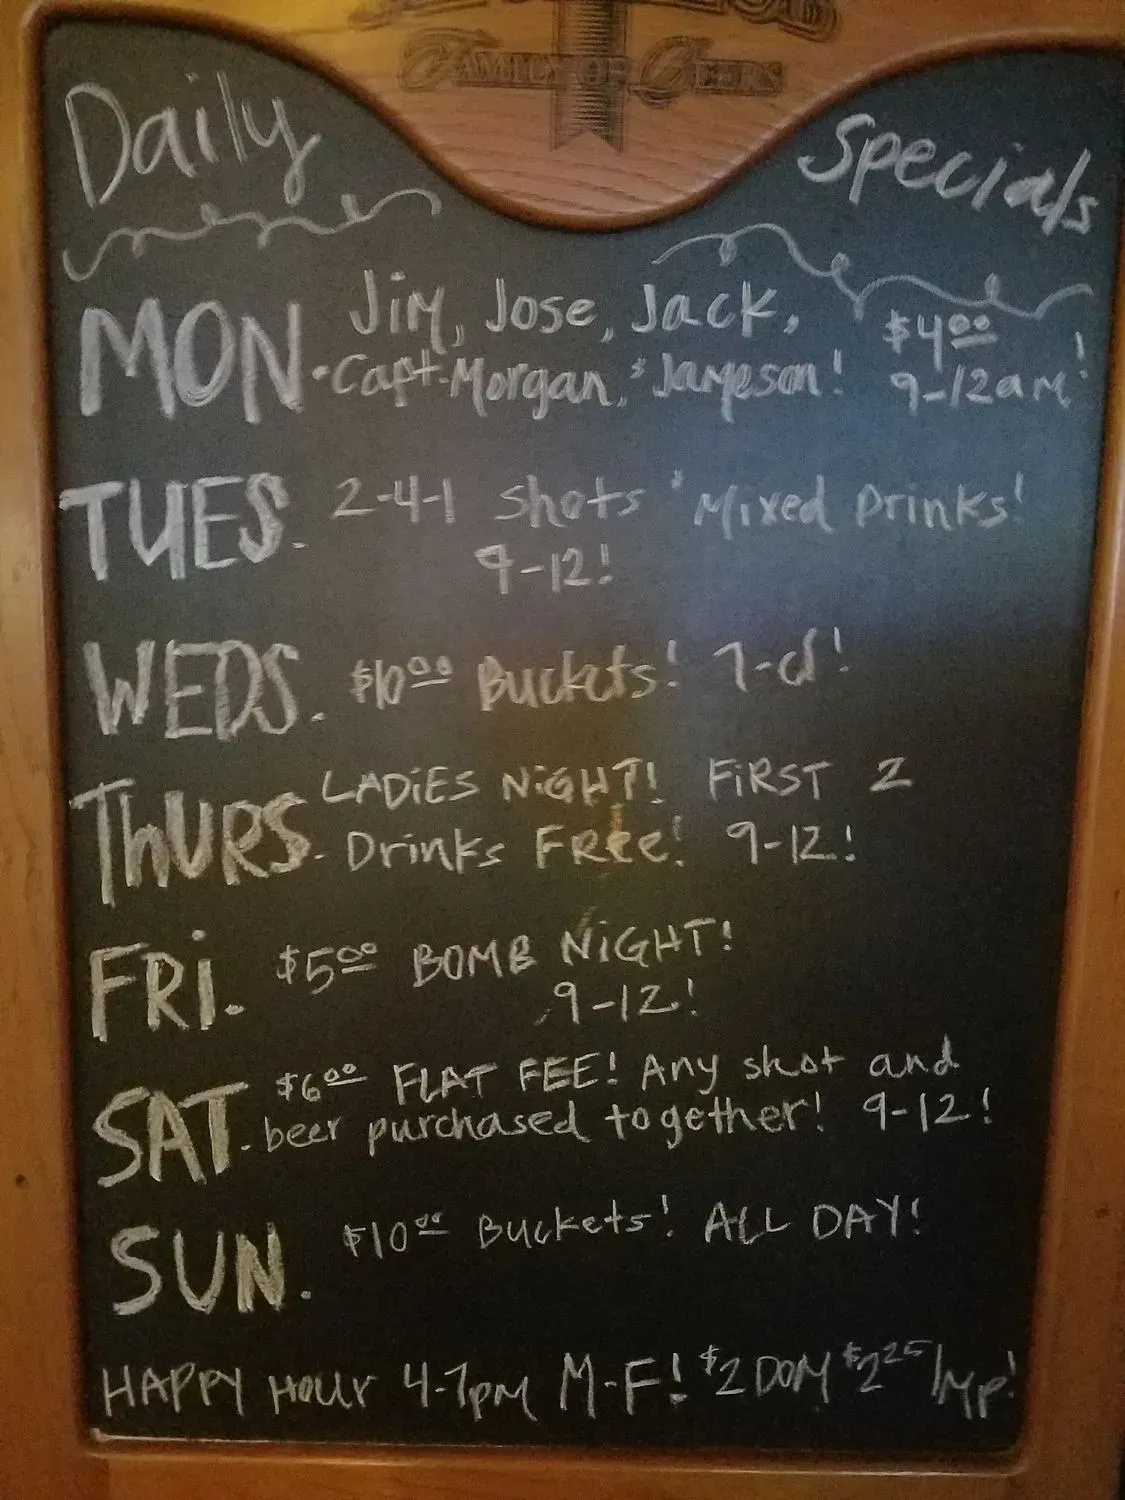 Family of Beers
Daily Specials
MON. Jim, Jose, Jack, $4.00
Capt. Morgan, & Jameson! 9-12am!
TUES. 2-4-1 Shots & Mixed Drinks!
9-12!
WEDS. $10.00 Buckets! 7-cl!
THURS. LADIES NIGHT! FIRST 2
Drinks FRee! 9-12!
FRI. $5.00 BOMB NIGHT!
9-12!
SAT. $6.00 FLAT FEE! Any shot and
beer purchased together! 9-12!
SUN. $10.00 Buckets! ALL DAY!
HAPPY HOUR 4-7pm M-F! $2 DOM $2.25/Mp!